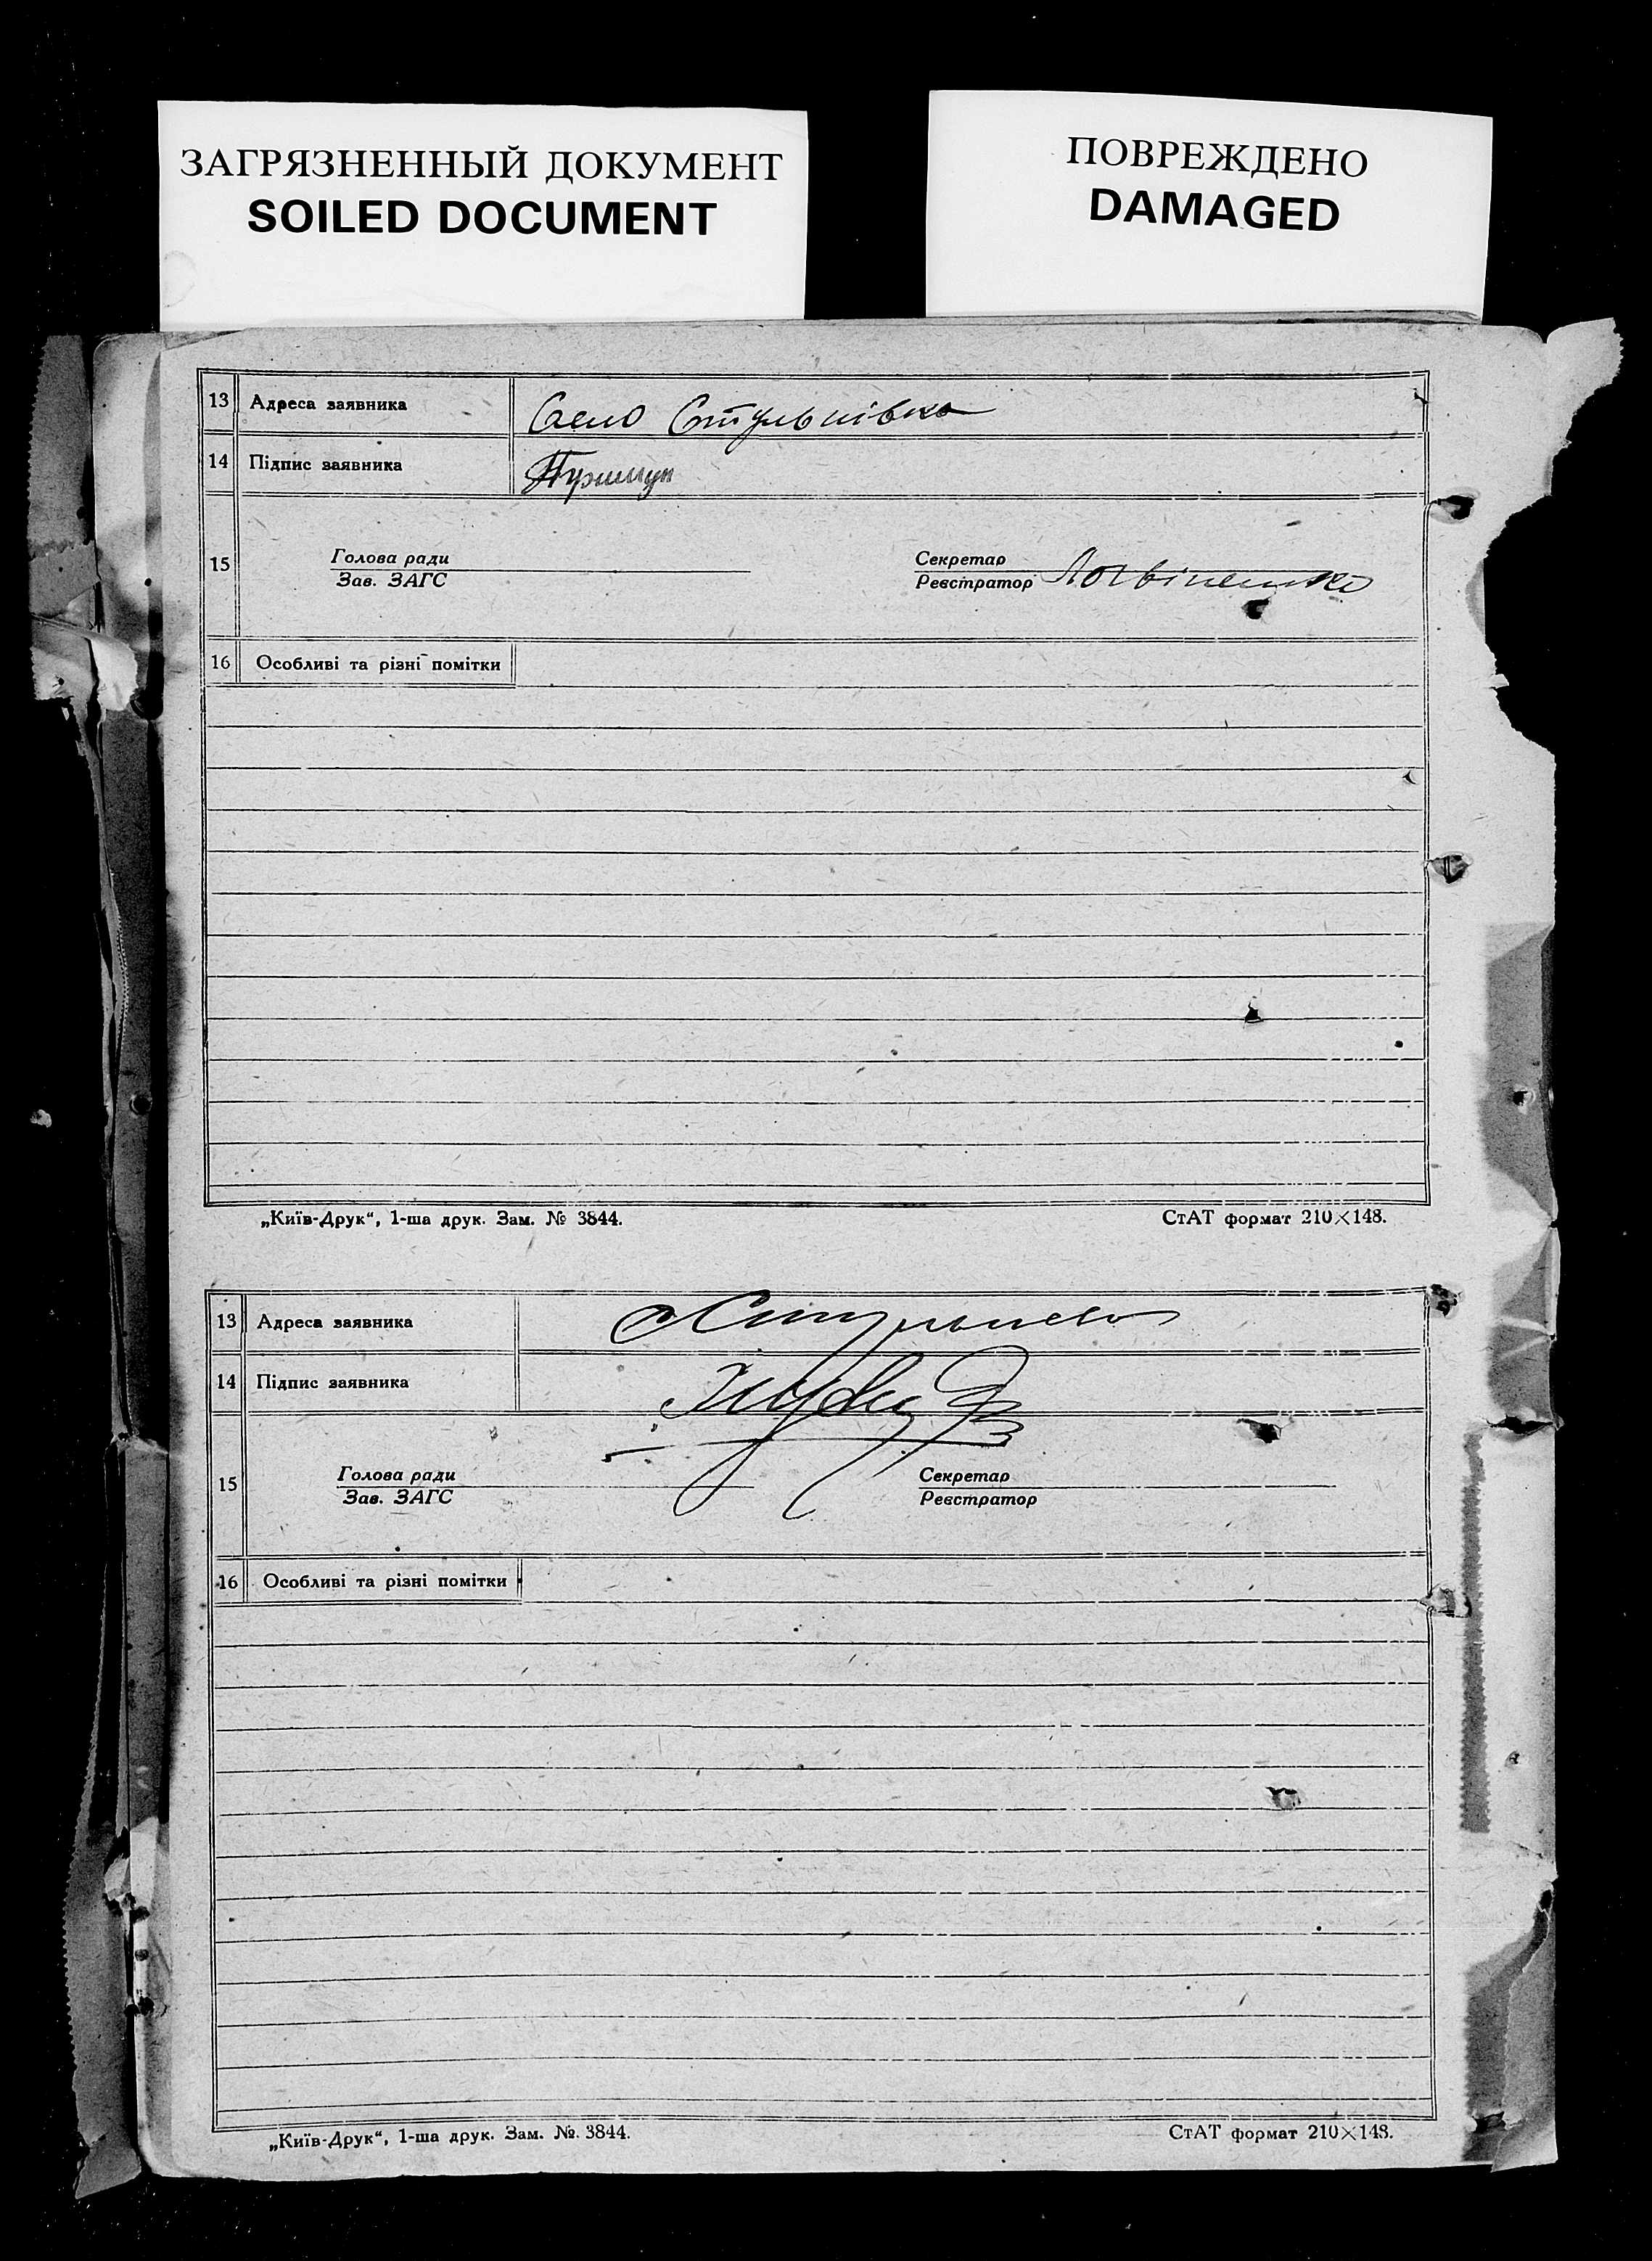 ЗАГРЯЗНЕННЫЙ ДОКУМЕНТ
SOILED DOCUMENT
ПОВРЕЖДЕНО
DAMAGED
13 Адреса заявника Село Стульнівка
14 Підпис заявника
15 Голова ради
Зав. ЗАГС
Секретар
Реєстратор Логвіненко
16 Особливі та різні помітки
„Київ-Друк“, 1-ша друк. Зам. № 3844.
СтАТ формат 210×148.
13 Адреса заявника
14 Підпис заявника
15 Голова ради
Зав. ЗАГС
Секретар
Реєстратор
16 Особливі та різні помітки
„Київ-Друк“, 1-ша друк. Зам. №. 3844.
СтАТ формат 210×148.